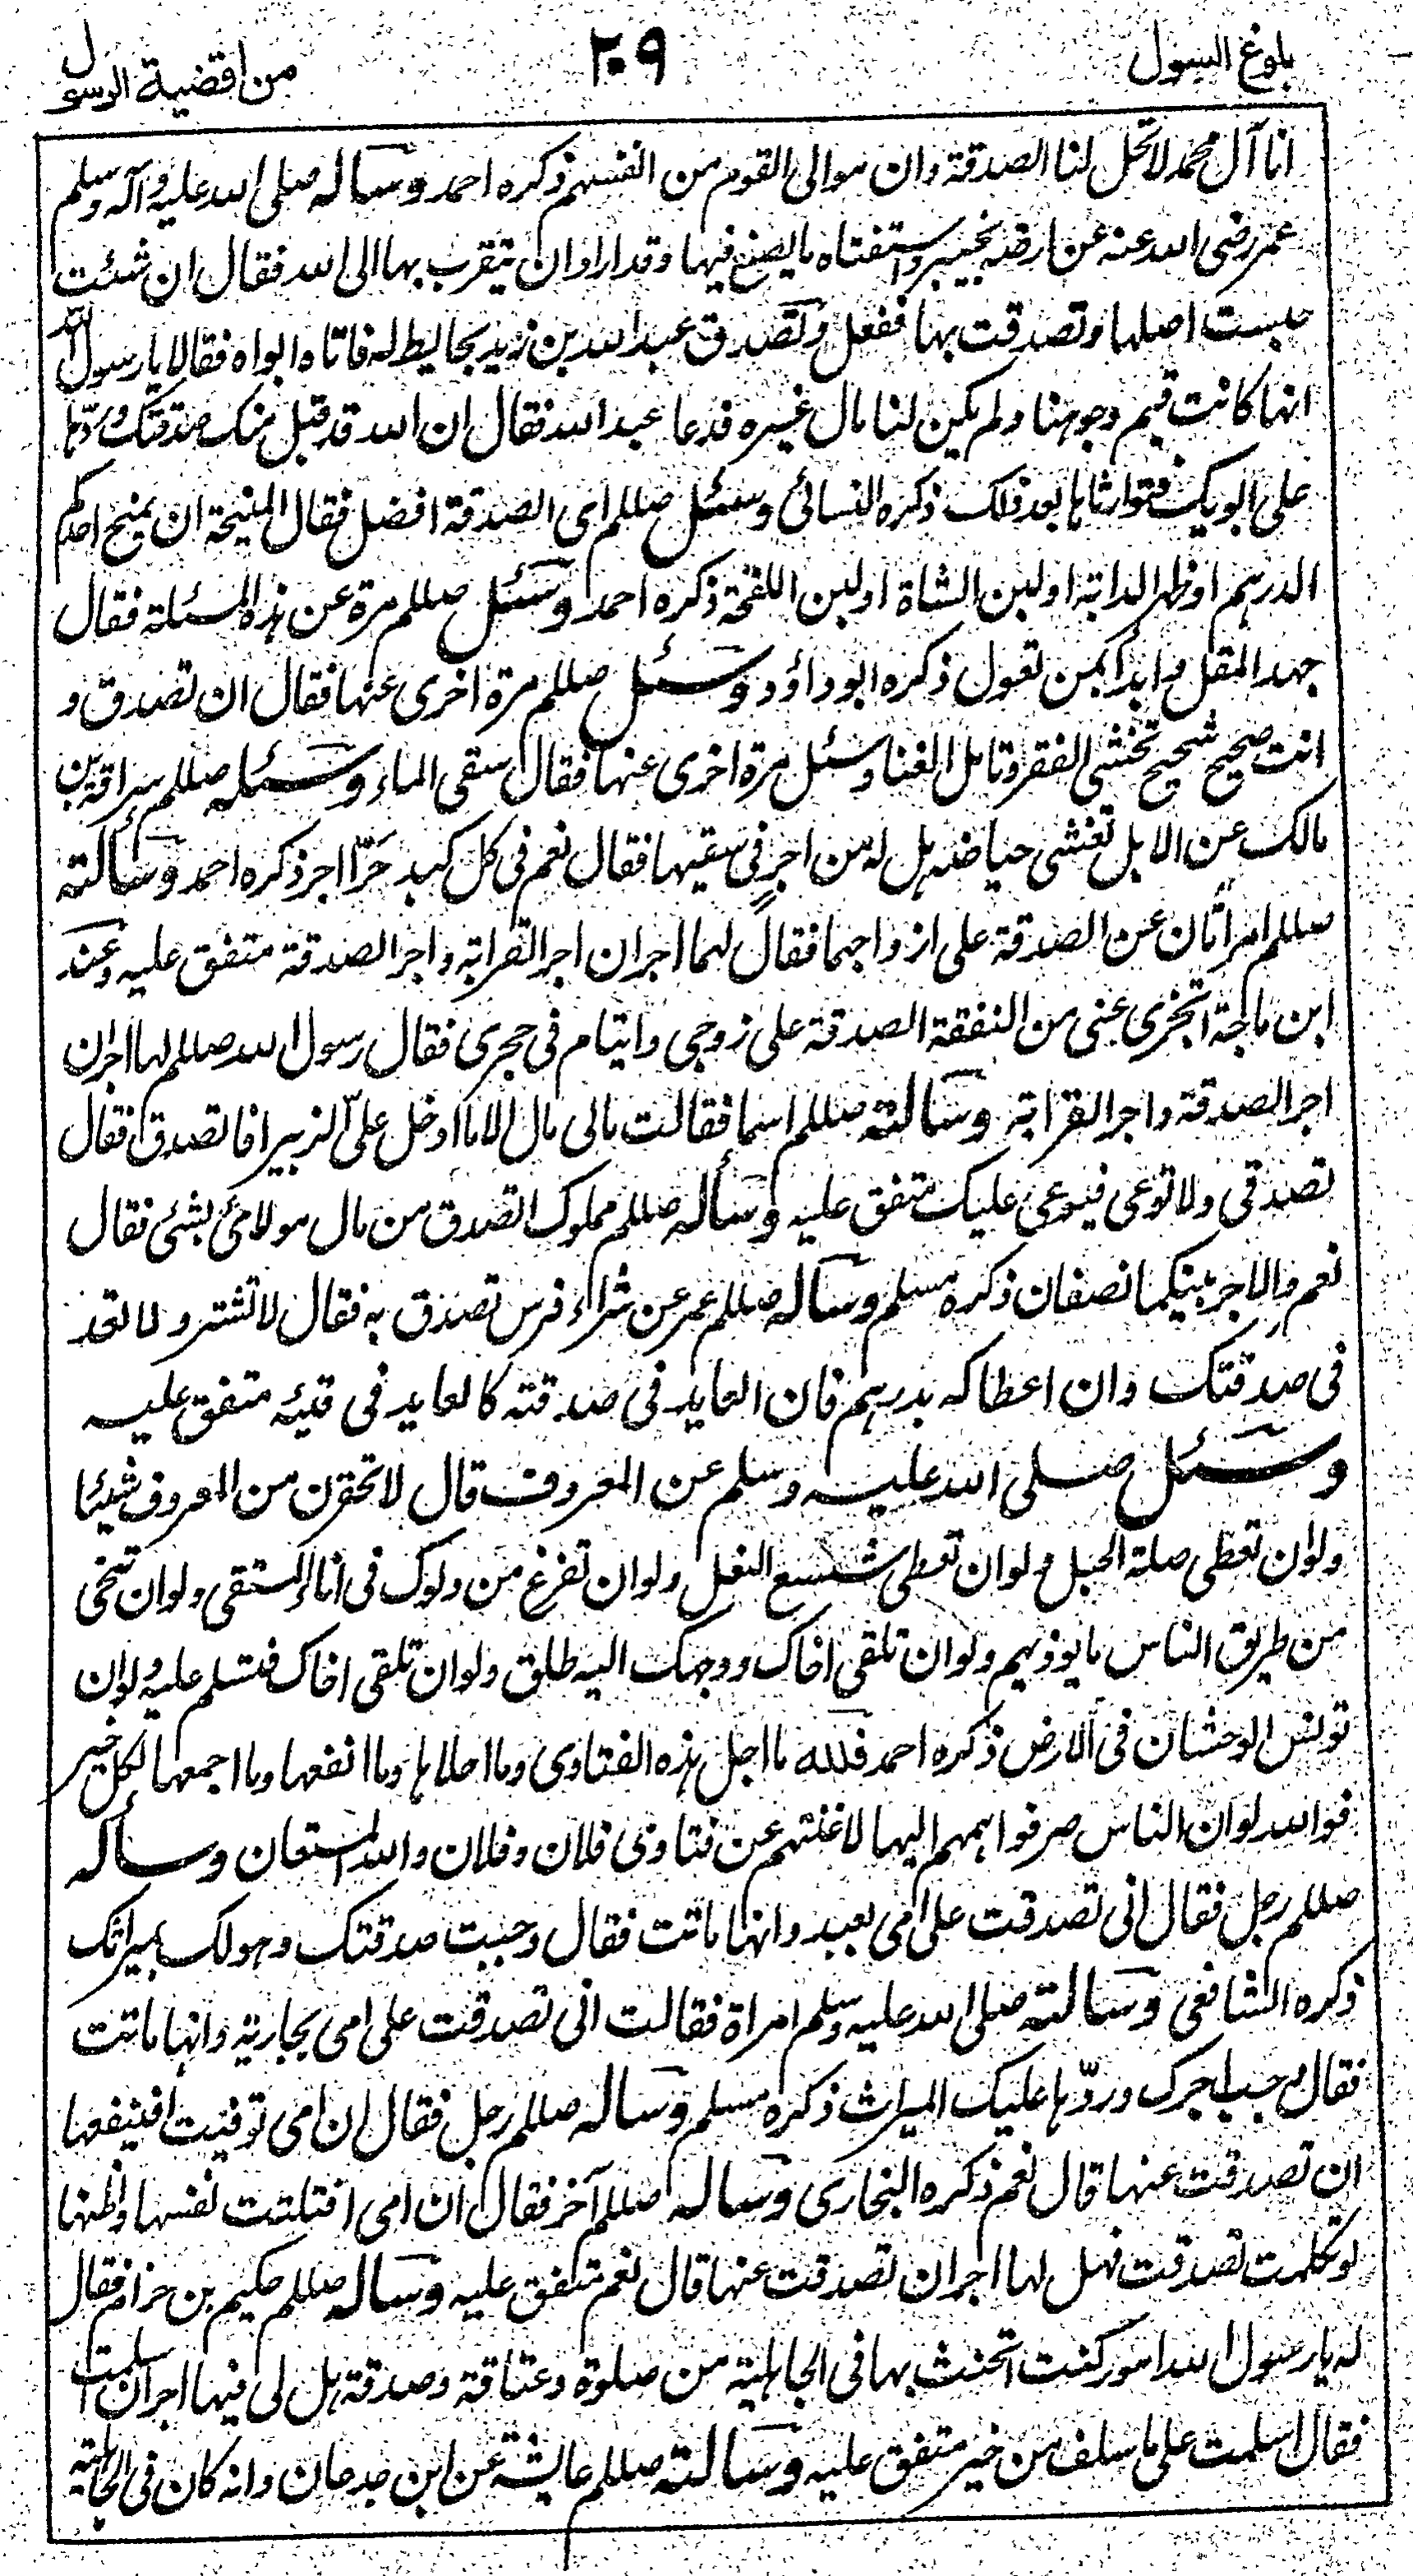 بلوغ السول
٢٠٩
من اقضية الرسول
انا آل محمد لا تحل لنا الصدقة وان موالى القوم من انفسهم ذكره احمد وسأله صلى الله عليه وآله وسلم
عمر رضى الله عنه عن ارضه بخيبر واستفتاه ما يصنع فيها وقد اراد ان يتقرب بها الى الله فقال ان شئت
حبست اصلها وتصدقت بها ففعل وتصدق عبد الله بن زيد بحايط له فاتاه ابواه فقالا يا رسول الله
انها كانت قيم وجوهنا ولم يكن لنا مال غيره فدعا عبد الله فقال ان الله قد قبل منك صدقتك وردّها
على ابويك فتوارثاها بعد ذلك ذكره النسائى وسئل صللم اى الصدقة افضل فقال المنيحة ان يمنح احدكم
الدرهم او ظهر الدابة او لبن الشاة او لبن اللقحة ذكره احمد وسئل صللم مرة عن هذه المسئلة فقال
جهد المقل وابدأ بمن تعول ذكره ابو داؤد وسئل صللم مرة اخرى عنها فقال ان تصدق و
انت صحيح شحيح تخشى الفقر وتامل الغنا وسئل مرة اخرى عنها فقال سقى الماء وسئله صللم سراقة بن
مالك عن الابل تغشى حياضه هل له من اجرٍ فى سقيها فقال نعم فى كل كبد حَرّا اجر ذكره احمد وسألته
صللم امرأتان عن الصدقة على ازواجهما فقال لهما اجران اجر القرابة واجر الصدقة متفق عليه وعند
ابن ماجة اتجزى عنى من النفقة الصدقة على زوجى وايتام فى حجرى فقال رسول الله صللم لها اجران
اجر الصدقة واجر القرابة وسالته صللم اسما فقالت مالى مال الا ما ادخل علىّ الزبير افاتصدق فقال
تصدقى ولا توعى فيوعى عليك متفق عليه وسأله صللم مملوك اتصدق من مال مولائى بشئى فقال
نعم والاجر بينكما نصفان ذكره مسلم وسأله صللم عمر عن شراء فرس تصدق به فقال لا تشتر ولا تعد
فى صدقتك وان اعطاكه بدرهم فان العايد فى صدقته كالعايد فى قيئه متفق عليه
وسئل صلى الله عليه وسلم عن المعروف قال لا تحقرن من المعروف شيئا
ولو ان تعطى صلة الحبل ولو ان تعطى شسع النعل ولو ان تفرغ من دلوك فى اناء المستقى ولو ان تنحى
من طريق الناس ما يوذيهم ولو ان تلقى اخاك ووجهك اليه طلق ولو ان تلقى اخاك فتسلم عليه ولو ان
تونس الوحشان فى الارض ذكره احمد فلله ما اجل هذه الفتاوى وما احلاها وما انفعها وما اجمعها لكل خير
فوالله لو ان الناس صرفوا هممهم اليها لاغنتهم عن فتاوى فلان وفلان والله المستعان وسأله
صللم رجل فقال انى تصدقت على امى بعبد وانها ماتت فقال وجبت صدقتك وهو لك بميراثك
ذكره الشافعى وسالته صلى الله عليه وسلم امراة فقالت انى تصدقت على امى بجارية وانها ماتت
فقال وجب اجرك وردّها عليك الميراث ذكره مسلم وسأله صللم رجل فقال ان امى توفيت افينفعها
ان تصدقت عنها قال نعم ذكره البخارى وسأله صللم آخر فقال ان امى افتلتت نفسها واظنها
لو تكلمت تصدقت فهل لها اجر ان تصدقت عنها قال نعم متفق عليه وسأله صللم حكيم بن حزام فقال
له يا رسول الله امور كنت اتحنث بها فى الجاهلية من صلوة وعتاقة وصدقة هل لى فيها اجر ان اسلمت
فقال اسلمت على ما سلف من خير متفق عليه وسالته صللم عايشة عن ابن جدعان وانه كان فى الجاهلية